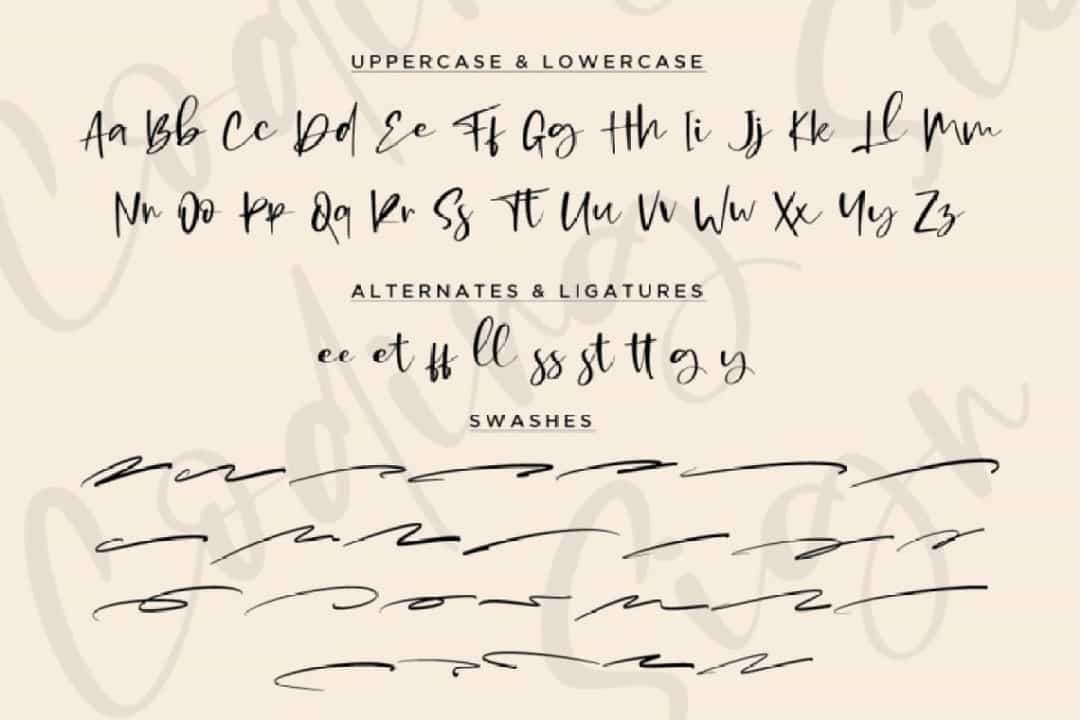 UPPERCASE & LOWERCASE
Aa Bb Cc Dd Ee Ff Gg Hh Ii Jj Kk Ll Mm
Nn Oo Pp Qq Rr Ss Tt Uu Vv Ww Xx Yy Zz
ALTERNATES & LIGATURES
ee et ff ll ss st tt g y
SWASHES